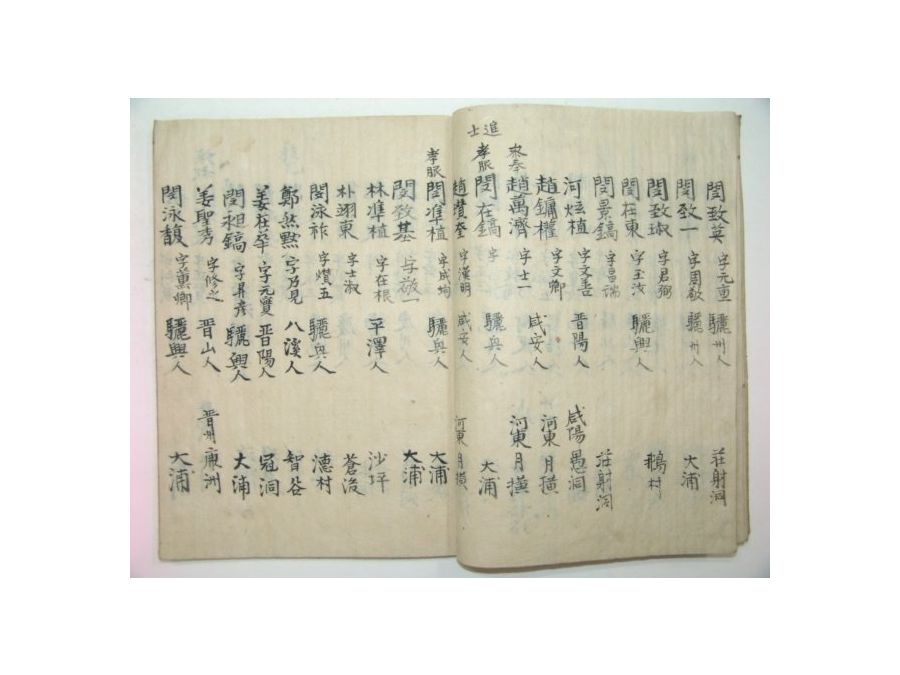 閔致英 字元重 驪州人 莊射洞
閔致一 字周敬 驪州人 大浦
閔致琡 字君弼
閔在東 字玉汝 驪興人 鵝村
閔景鎬 字昌瑞 莊射洞
河炫植 字文善 晋陽人 咸陽愚洞
趙鏞權 字文卿 河東月橫
參奉 趙萬濟 字士一 咸安人 河東月橫
追士
孝服 閔在鎬 字 驪興人 大浦
趙瓚奎 字漢明 咸安人 河東月橫
孝服 閔準植 字成均 驪興人 大浦
閔致基 字敬一 大浦
林準植 字在根 平澤人 沙坪
朴翊東 字士淑 蒼後
閔泳祚 字瓚五 驪興人 德村
鄭然黙 字乃見 八溪人 智谷
姜在 字元實 晋陽人 冠洞
閔祖鎬 字昇彦 驪興人 大浦
姜聖秀 字修之 晋山人 晋州康洲
閔泳馥 字蕙卿 驪興人 大浦